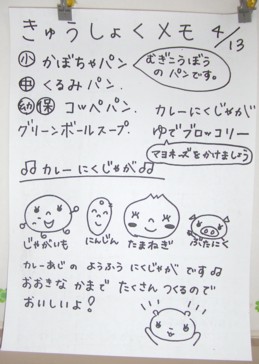 きゅうしょくメモ 4/13
小 かぼちゃパン
むぎこうぼうのパンです。
中 くるみパン.
幼 保 コッペパン
グリーンボールスープ.
カレーにくじゃが
ゆでブロッコリー
マヨネーズをかけましょう
♫カレーにくじゃが♫
じゃがいも にんじん たまねぎ ぶたにく
カレーあじの ようふう にくじゃが です♫
おおきな かまで たくさん つくるので
おいしいよ！